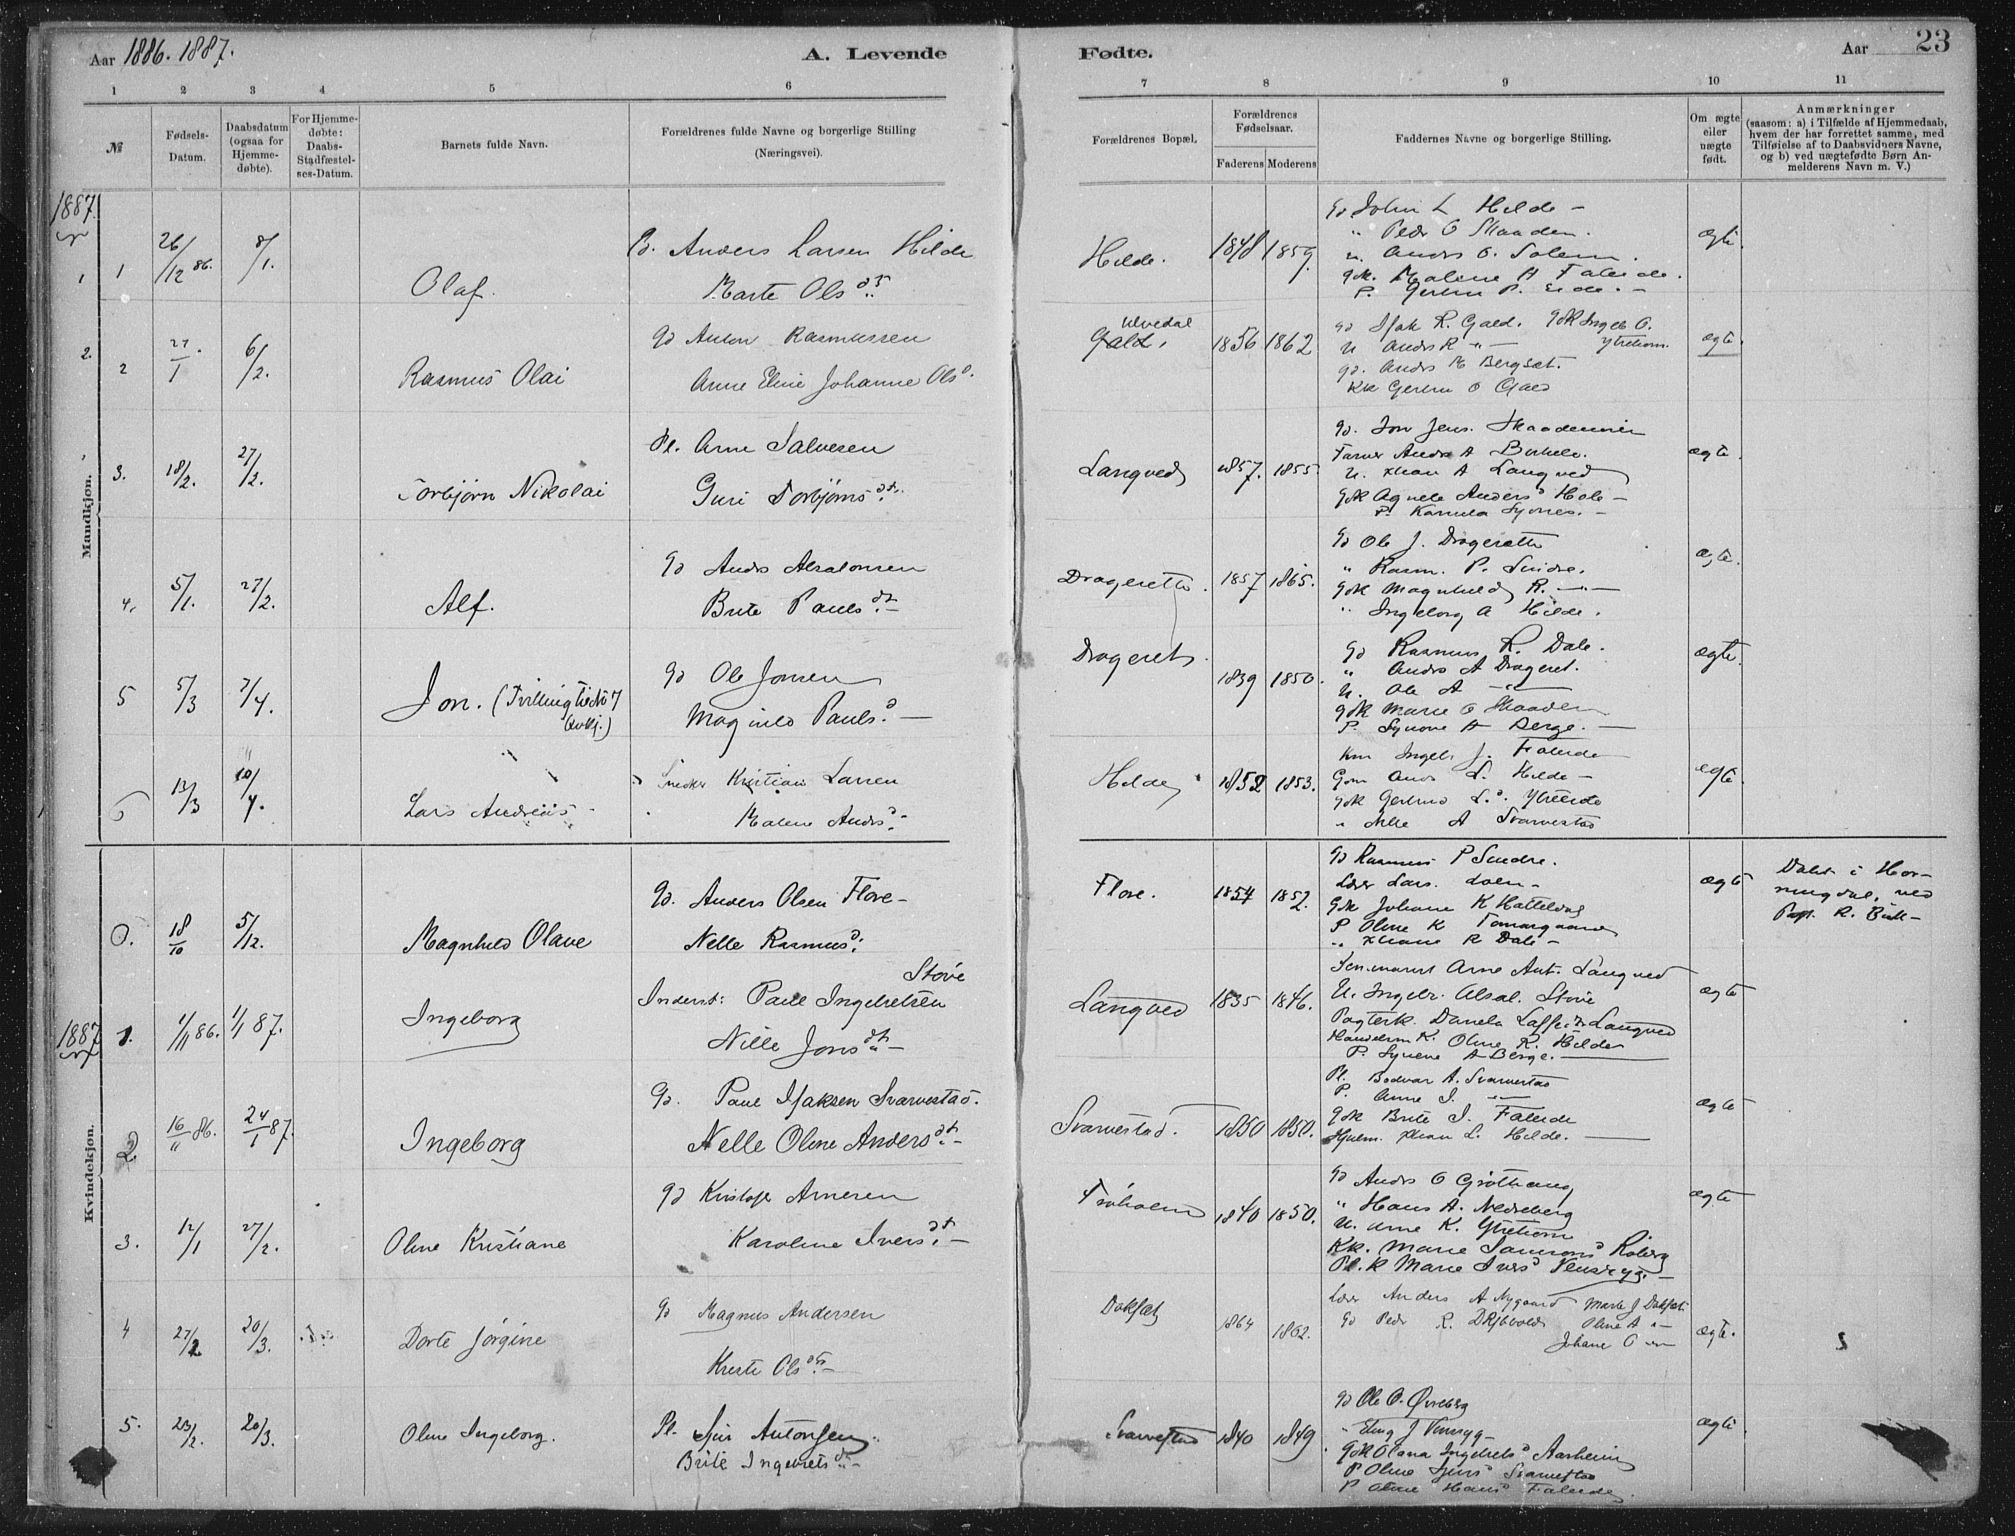 Aar 1886. 1887.
A. Levende
Fødte.
Aar
23
1 2 3 4 5 6 7 8 9 10 11
№
Fødsels-Datum.
Daabsdatum (ogsaa for Hjemme-døbte).
For Hjemme-døbte: Daabs-Stadfæstel-ses-Datum.
Barnets fulde Navn.
Forældrenes fulde Navne og borgerlige Stilling
(Næringsvei).
Forældrenes Bopæl.
Forældrenes Fødselsaar.
Faderens Moderens
Faddernes Navne og borgerlige Stilling.
Om ægte eller uægte født.
Anmærkninger
(saasom: a) i Tilfælde af Hjemmedaab,
hvem der har forrettet samme, med
Tilføielse af to Daabsvidners Navne,
og b) ved uægtefødte Børn An-
melderens Navn m. V.)
Mandkjøn.
1887
1 1 26/12 86. 8/1. Olaf.
Anders Larsen Hilde
Marte Olsdt.
Hilde. 1848 1859.
Gd John L Hilde
" Peder O Skaaden.
u. Anders O. Solem.
Gdk. Malene A Faleide.
P. Gertru P. Eide.
ægte.
2. 2 6/2. Rasmus Olai
Gd Anton Rasmussen
Anne Eline Johanne Olsd.
Ulvedal
Gald. 1856 1862
Gd Isak R. Gald. Gdk Ingeb O. Ytrehorn.
U Anders R
Gd. Anders M Bergset.
Kk Gertru O Gald
ægte.
3. 18/2. 27/2. Torbjørn Nikolai
Pl. Arne Salvesen
Guri Torbjørnsdt.
Langved 1857. 1855
Gd. Jon Jens. Skaademoien
Farver Anders A Birkelv.
U. Johan A Langved
Gdk Agnete Andersd Hole
P. Kamilla Synnes.
ægte.
4. 5/1. 27/2. Alf.
Gd Anders Absalonsen
Brite Paulsdt.
Drageretti. 1857 1865.
Gd Ole J. Drageretti
" Rasm. P. Sindre.
Gdk Magnhild R.
" Ingeborg A Hilde.
ægte.
5 5/3 7/4. Jon. (Tvilling til No 7 Kvkj.)
Gd Ole Jonsen
Magnild Paulsd.
Drageret. 1839 1850.
Gd Rasmus R. Dale.
" Anders A Drageret.
U. Ole A
Gdk Marie O Skaaden
P. Synove A Berge.
ægte.
6 13/3 10/4. Lars Andreas
Snedker Kristian Larsen
Malene Andersd.
Hilde 1852 1853.
Km Ingeb. J. Faleide
Gm Anders L. Hilde
Gdk Gertrud L.d. Ytreeide
" Nille A Svarvestad
ægte.
Kvindekjøn.
0. 18/10 5/12. Magnhild Olave
Gd. Anders Olsen Flore
Nelle Rasmusd.
Flore. 1854 1852.
Gd Rasmus P Sindre.
Lærer Lars. Loen
Gdk Johane K Hatteldag
P Oline K Tomasgaard
" Johane R Dale
ægte
Døbt i Hor-
ningdal, ved
1887
1. 1/11 86. 1/1 87. Ingeborg
Inderst: Paul Ingebretsen Støve
Nille Jonsdt.
Langved 1835 1846.
Arne Ant. Langved
U. Ingebr. Absal. Støve
Daniela Langved
Handelsm. K. Oline R. Hilde
P. Synove A Berge.
ægte
2 16/11 86. 24/1 87. Ingeborg
Gd. Paul Isaksen Svarvestad.
Nelle Oline Andersdt.
Svarvestad. 1850 1850.
Pl. Bodvar A. Svarvestad
P. Anne I.
Gdk Brite I. Faleide
Hjulm. Johan L. Hilde.
ægte
3. 12/1 27/2. Oline Kristiane
Gd Kristofer Arnesen
Karoline Iversdt.
1840 1850.
Gd Anders O Grøthaug
" Hans A. Nedreberg
U. Arne K. Ytrehorn
Kk. Marie Samsonsd Roberg
Pl. K Marie Iversd Venseryg.
ægte
4 27/2 20/3. Dorte Jørgine
Gd Magnus Andersen
Kreste Olsdt.
Dokset 1864 1862.
Lærer Anders A Nygaard Marte J Dokset.
Gd Peder R. Oline A
Johane O
ægte.
5. 23/2. 20/3. Oline Ingeborg.
Pl. Sjur Antonsen.
Brite Ingebretsdt.
Svarvestad 1840 1849.
Gd Ole O. Øvreberg
" Elling J Venseryg
Gdk Olana Ingebretsd Aarheim
P Oline Sjursd Svarvestad
P Oline Hansd Faleide.
ægte